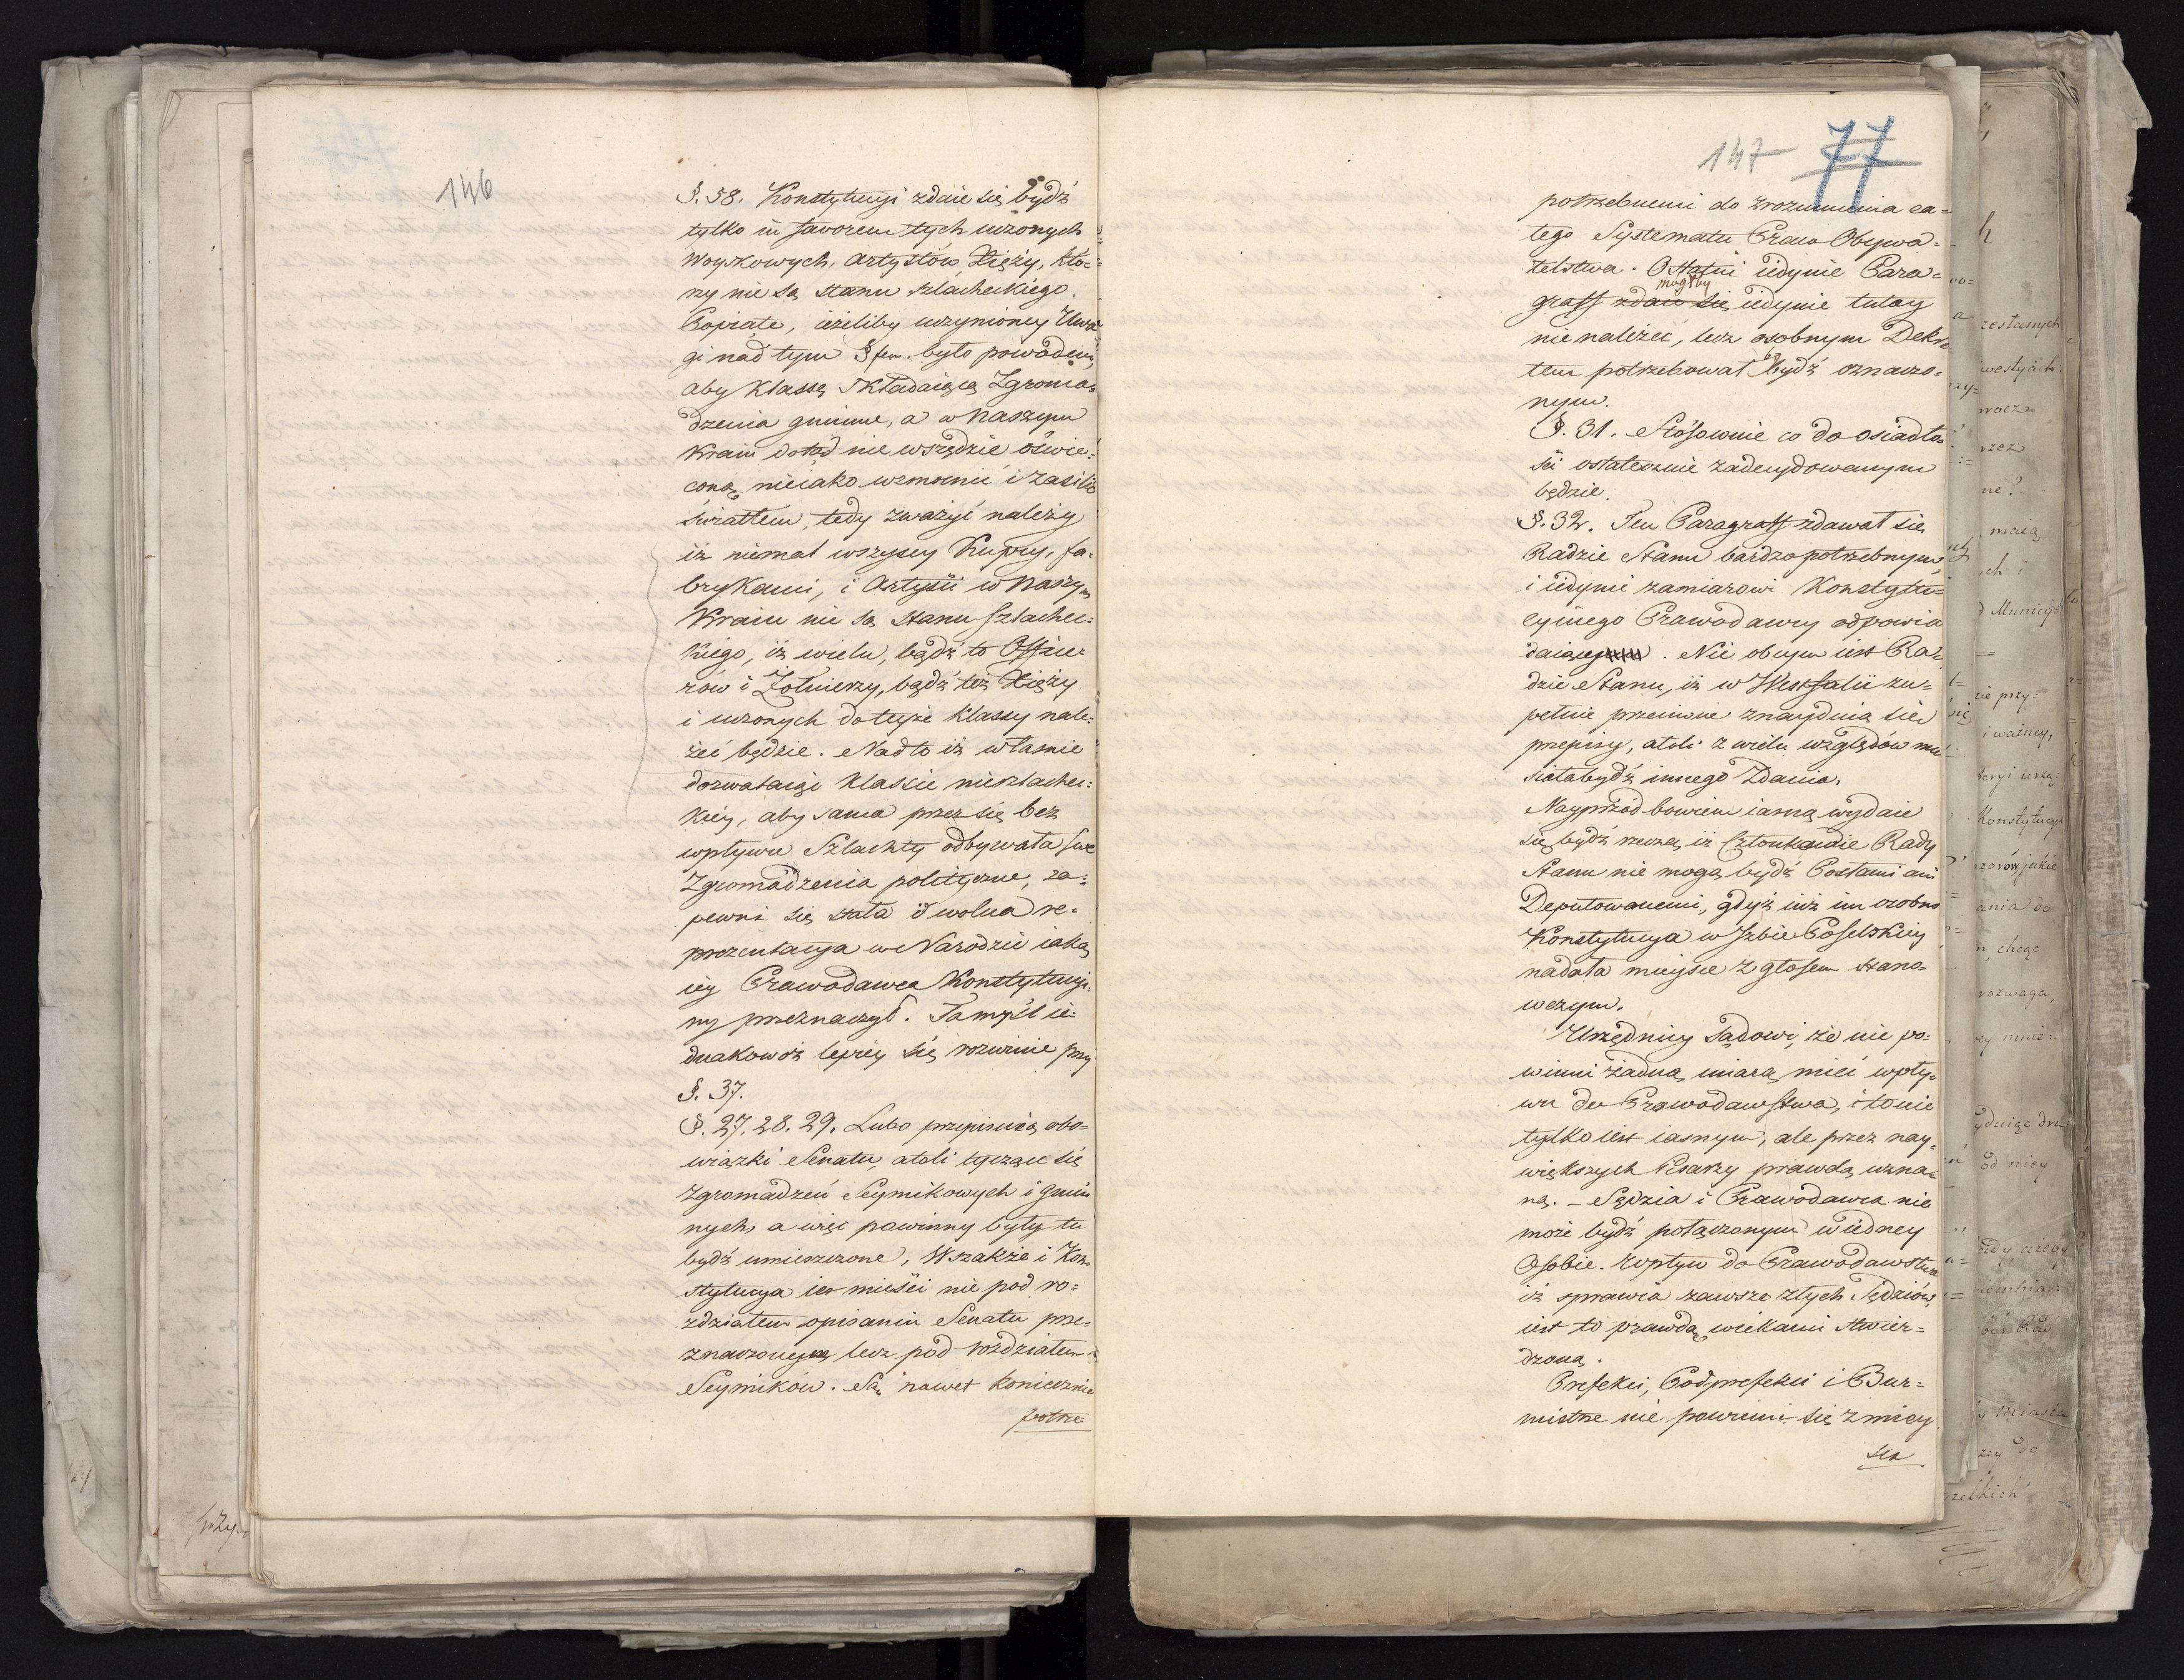 146
§. 58. Konstytucyi zdaie się bydź
tylko in favorem tych uczonych
Woyskowych, Artystów, Xięży, któ=
rzy nie są stanu szlacheckiego.
Popiate, ieżeliby uczynioney Uwa
gi nad tym §fem. było powodem,
aby Klassę składaiącą Zgroma=
dzenia gminne, a w naszym
Kraiu dotąd nie wszędzie oświe=
coną, nieiako wzmocnić i zasilić
światłem, tedy zważyć należy
iż niemal wszyscy Kupcy, fa=
brykanci, i Artyści w naszym
Kraiu nie są stanu szlachec=
kiego, iż wielu, bądź to Office=
rów i Żołnierzy, bądź też Xięży
i uczonych do teyże klassy nale=
żeć będzie. Nadto iż właśnie
dozwalaiąc klassie nieszlachec=
kiey, aby sama przez się bez
wpływu Szlachty odbywała swe
Zgromadzenia polityczne, za=
pewni się stała i wolna re=
prezentacya w Narodzie iaką
iey Prawodawca Konstytucyi=
ny przeznaczył. Ta myśl ie=
dnakowoż lepiey się rozwinie przy
§. 37.
§. 27. 28. 29. Lubo przepisuią obo=
wiązki Senatu, atoli tyczące się
Zgromadzeń Seymikowych i gmin
nych, a więc powinny były tu
bydź umieszczone, Wszakże i Kon
stytucya ie mieści nie pod ro=
zdziałem opisaniu Senatu prze=
znaczonym, lecz pod rozdziałem
Seymików. Są nawet koniecznie
potrze=
147 77
potrzebnemi do zrozumienia ca=
łego Systematu Praw Obywa=
telstwa. Ostatni iedynie Para=
mógłby
graff zdaie się iedynie tutay
nie należeć, lecz osobnym Dekre
tem potrzebował bydź oznaczo=
nym.
§. 31. Stósownie co do osiadło=
ści ostatecznie zadecydowanym
będzie.
§. 32. Ten Paragraff zdawał się
Radzie Stanu bardzo potrzebnym,
i iedynie zamiarowi Konstytu=
cyinego Prawodawcy odpowia
daiącym. Nie obcym iest Ra=
dzie Stanu, iż w Westfalii zu=
pełnie przeciwne znayduią się
przepisy, atoli z wielu względów mu
siała bydź innego zdania.
Nayprzód bowiem iasną wydaie
się bydź rzeczą, iż Członkowie Rady
Stanu nie mogą bydź Posłami ani
Deputowanemi, gdyż iuż im osobno
Konstytucya w Izbie Poselskiey
nadała mieysce z głosem stano=
wczym.
Urzędnicy Sądowi, że nie po=
winni żadną miarą mieć wpły=
wu do Prawodawstwa, i to nie
tylko iest iasnym, ale przez nay=
większych Pisarzy prawdą uzna=
ną. – Sędzia i Prawodawca nie
może bydź połączonym w iedney
Osobie. Wpływ do Prawodawstwa
iż sprawia zawsze złych Sędziów,
iest to prawdą wiekami stwier=
dzoną.
Prefekci, Podprefekci i Bur=
mistrze nie powinni się z miey
sca